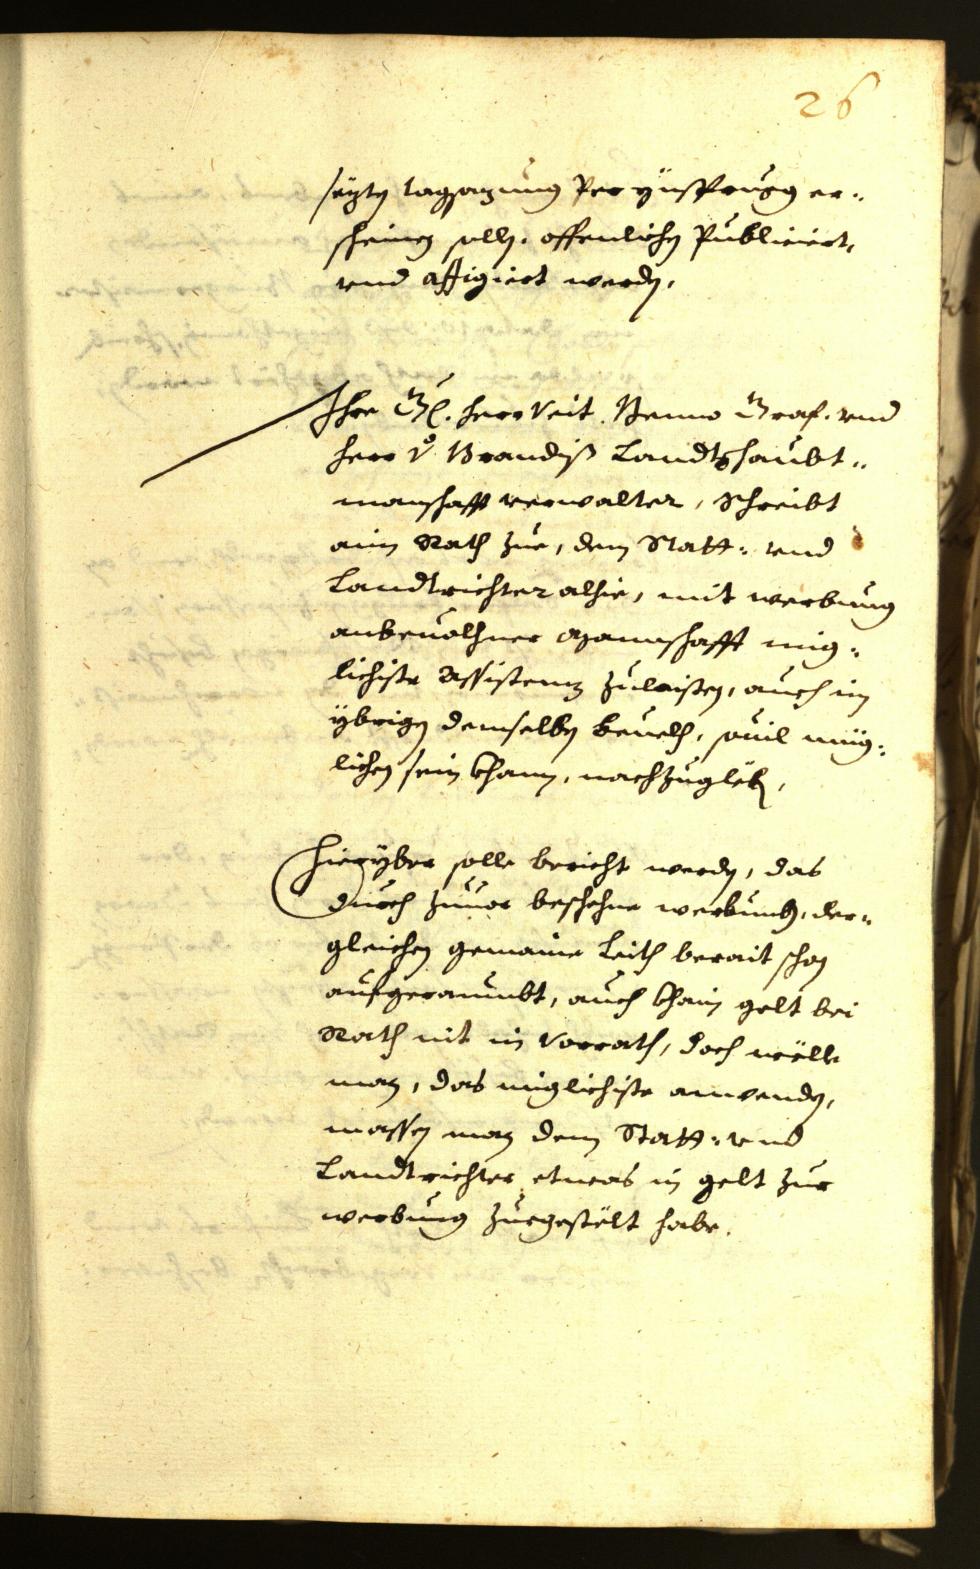 26
sezten tagsazung Per ÿnsprugg er-
scheinen sollen. offenlichen Publiciert,
vnd affigiert werden,
Ihre Gl. herr Veit Benno Graf. vnd
herr v Brandiß Landtshaubt-
manschafft verwalter, Schreibt
ain Rath zue, dem Statt- vnd
Landtrichter alhie, mit werbung
anbeuolhner Manschafft mig-
lichiste Assistenz zulaisten, auch im
ÿbrigen demselben beuelh, souil müg-
lichen sein khann, nachzugleben,
Hierÿber solle bericht werden, das
durch zuuor beschehne werbung, der-
gleichen gemaine Leith berait schon
aufgeraumbt, auch khain gelt bei
Rath nit in Vorrath, doch wölle
man, das miglichiste anwenden,
massen man dem Statt- vnd
Landtrichter etwas in gelt zur
werbung zuegestelt habe.